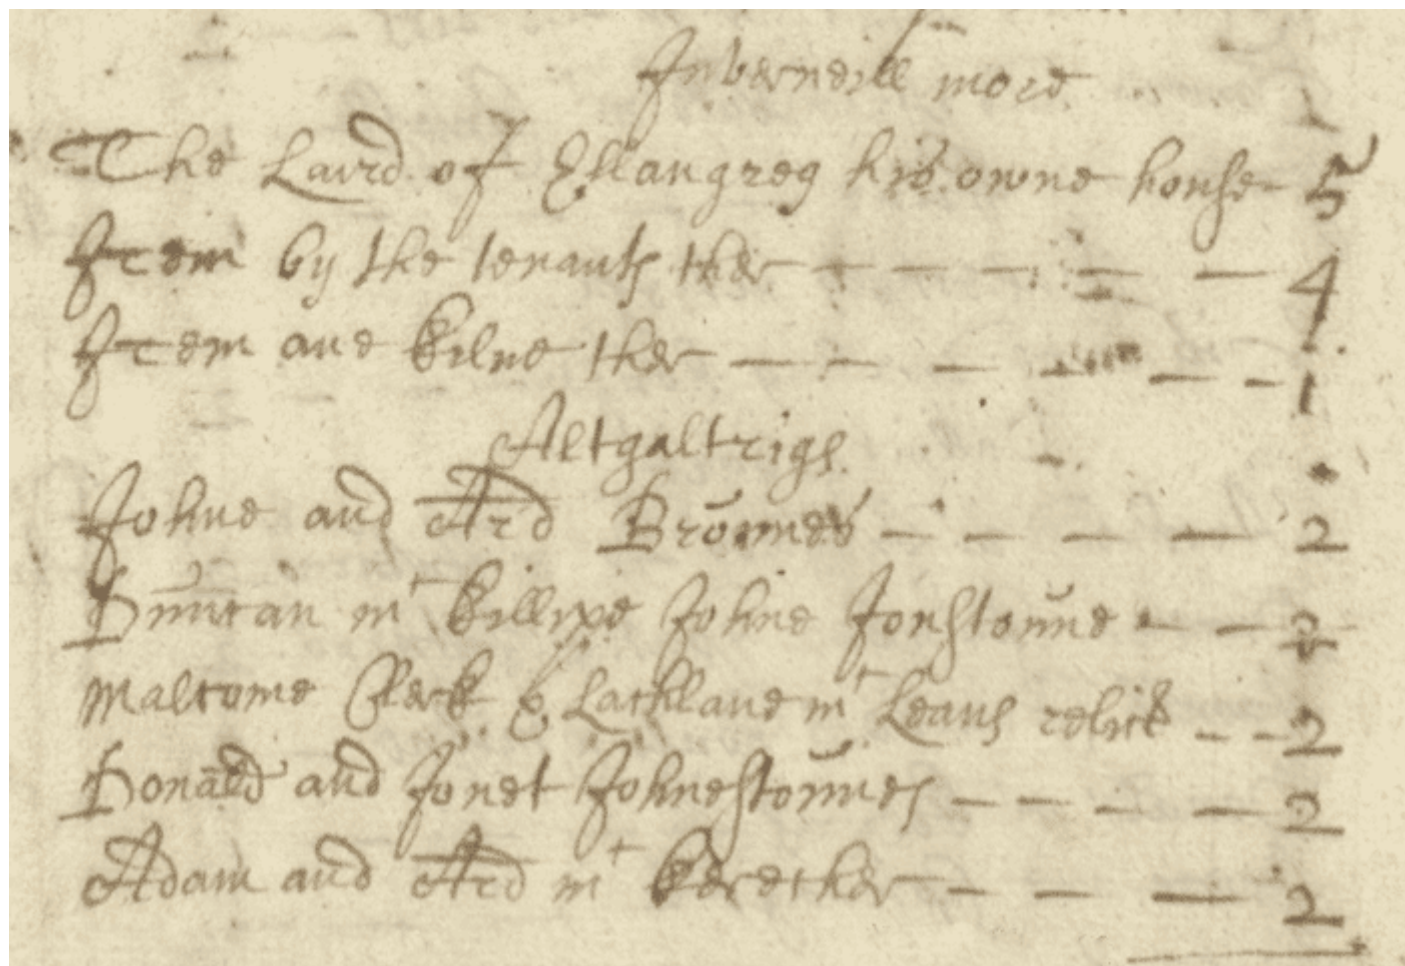 Inverneill more
The Laird of Ellangreg his owne house 5
Item by the tenants ther — — — — — 4
Item ane kilne ther — — — — — — 1
Altgaltrigs
Johne and Ard Brounes — — — — 2
Dunncan mc killipe Johne Jonstoune — — 2
Malcome Clerk & Lachlane mc Leans relict — — 2
Donald and Jonet Johnestounes — — — — 2
Adam and Ard mc kerether — — — 2